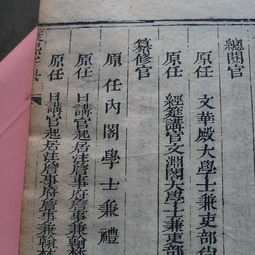 總閱官
原任文華殿大學士兼吏部尚
原任經筵講官文淵閣大學士兼吏部
纂修官
原任內閣學士兼禮
原任日講官起居注詹事府詹事兼翰林
原任日講官起居注詹事府詹事兼翰